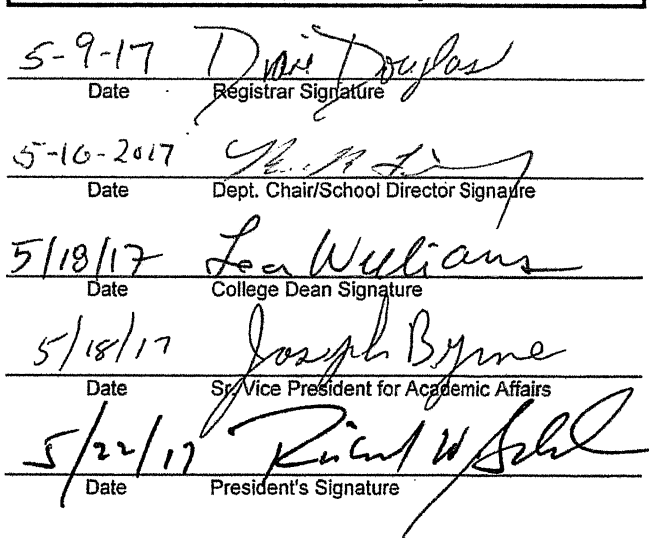 5-9-17 Dixie Douglas
Date Registrar Signature
5-10-2017
Date Dept. Chair/School Director Signaure
5/18/17 Lea Williams
Date College Dean Signature
5/18/17 Joseph Byrne
Date Sr. Vice President for Academic Affairs
5/22/17 Richard W
Date President's Signature